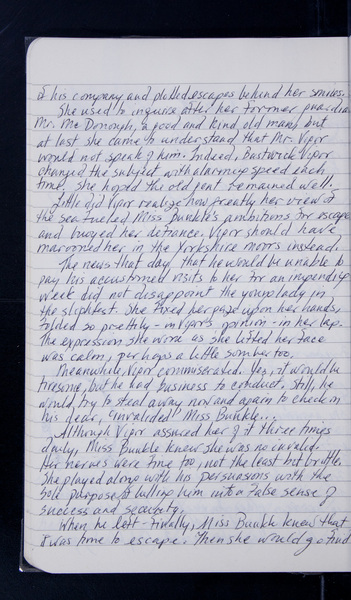 of his company and plotted escapes behind her smiles.
She used to inquire after her former guardian
Mr. McDonough, a good and kind old man, but
at last she came to understand that Mr. Vipor
would not speak of him. Indeed, Bustwick Vipor
changed the subject with alarming speed each
time. She hoped the old gent remained well.
Little did Vipor realize how greatly her view of
the sea fueled Miss Bunkle's ambitions for escape
and buoyed her defiance. Vipor should have
marooned her in the Yorkshire moors instead.
The news that day that he would be unable to
pay his accustomed visits to her for an impending
week did not disappoint the young lady in
the slightest. She fixed her gaze upon her hands,
folded so prettily - in Vipor's opinion - in her lap.
The expression she wore as she lifted her face
was calm, perhaps a little somber too.
Meanwhile, Vipor commiserated. Yes, it would be
tiresome, but he had business to conduct. Still, he
would try to steal away now and again to check in
his dear, "invalided" Miss Bunkle...
Although Vipor assured her of it three times
daily, Miss Bunkle knew she was no invalid.
Her nerves were fine too, not the least bit brittle.
She played along with his persuasions with the
sole purpose of lulling him into a false sense of
success and security.
When he left - finally, Miss Bunkle knew that
it was time to escape. Then she would go find